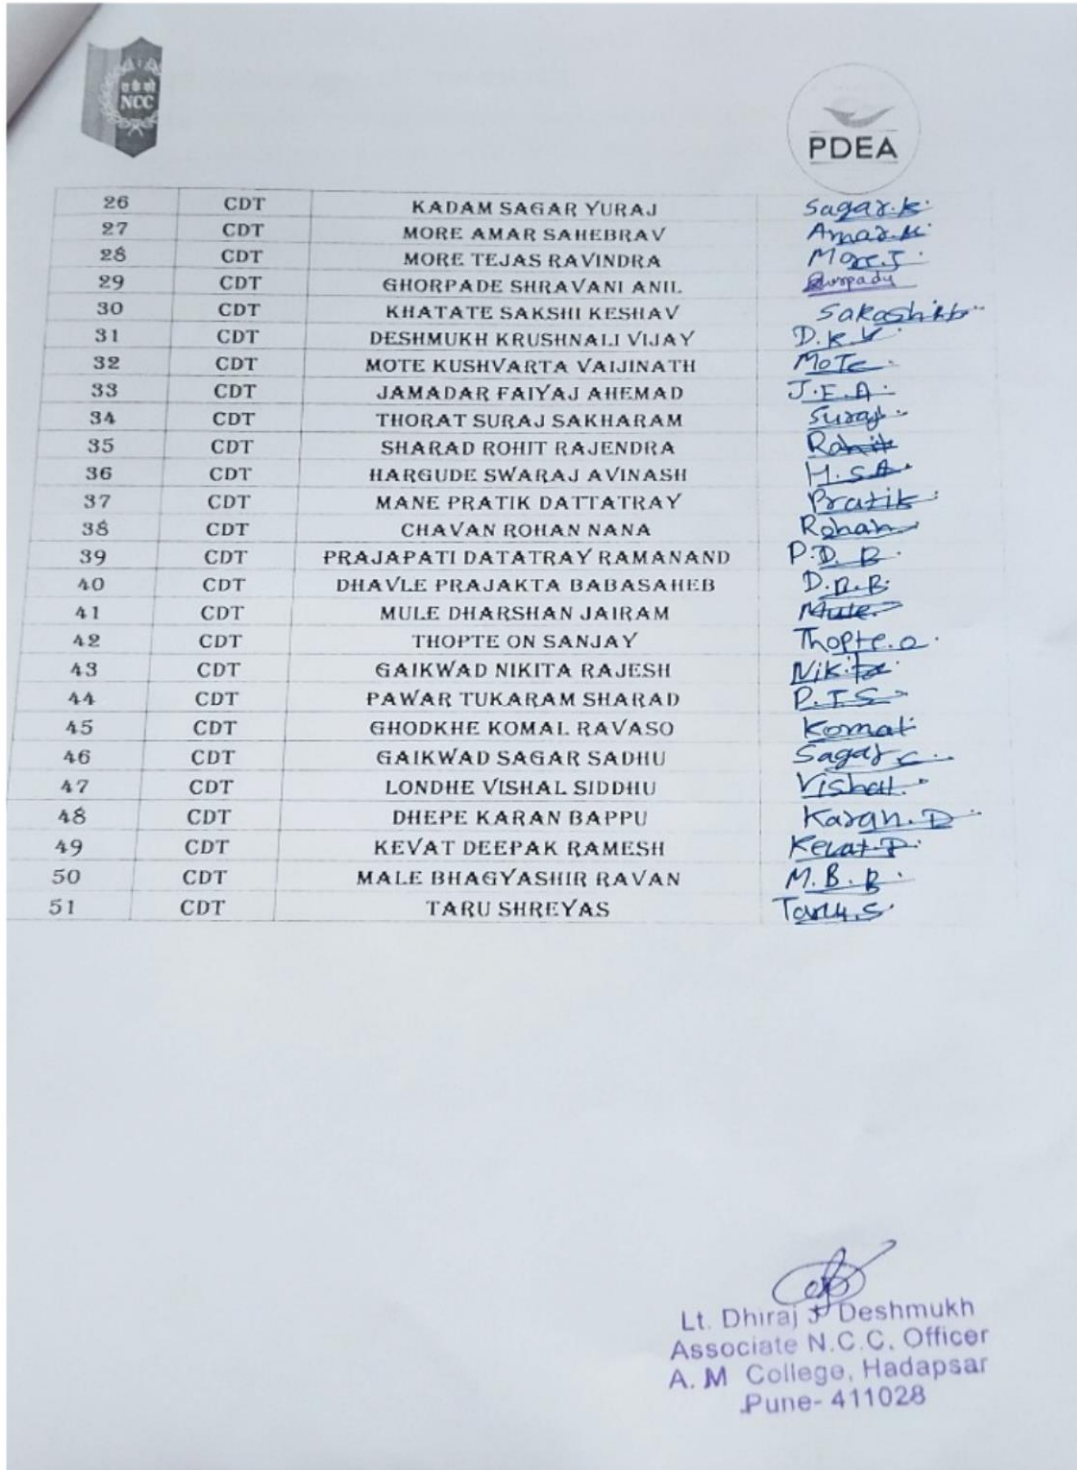 रा के को
NCC
PDEA
26 CDT KADAM SAGAR YURAJ Sagar.k.
27 CDT MORE AMAR SAHEBRAV Amar.
28 CDT MORE TEJAS RAVINDRA More.T.
29 CDT GHORPADE SHRAVANI ANIL
30 CDT KHATATE SAKSHI KESHAV
31 CDT DESHMUKH KRUSHNALI VIJAY D.K.V.
32 CDT MOTE KUSHVARTA VAIJINATH MoTe.
33 CDT JAMADAR FAIYAJ AHEMAD J.F.A.
34 CDT THORAT SURAJ SAKHARAM Suraj.
35 CDT SHARAD ROHIT RAJENDRA Rohit
36 CDT HARGUDE SWARAJ AVINASH H.S.A.
37 CDT MANE PRATIK DATTATRAY Pratik.
38 CDT CHAVAN ROHAN NANA Rohan
39 CDT PRAJAPATI DATATRAY RAMANAND P.D.R.
40 CDT DHAVLE PRAJAKTA BABASAHEB
41 CDT MULE DHARSHAN JAIRAM Mule.
42 CDT THOPTE ON SANJAY Thopte.o.
43 CDT GAIKWAD NIKITA RAJESH Nikita
44 CDT PAWAR TUKARAM SHARAD P.T.S
45 CDT GHODKHE KOMAL RAVASO Komal
46 CDT GAIKWAD SAGAR SADHU Sagar
47 CDT LONDHE VISHAL SIDDHU Vishal.
48 CDT DHEPE KARAN BAPPU Karan.D
49 CDT KEVAT DEEPAK RAMESH Kevat.D.
50 CDT MALE BHAGYASHIR RAVAN M.B.R.
51 CDT TARU SHREYAS Taru.S.
Lt. Dhiraj J Deshmukh
Associate N.C.C. Officer
A. M College, Hadapsar
Pune- 411028